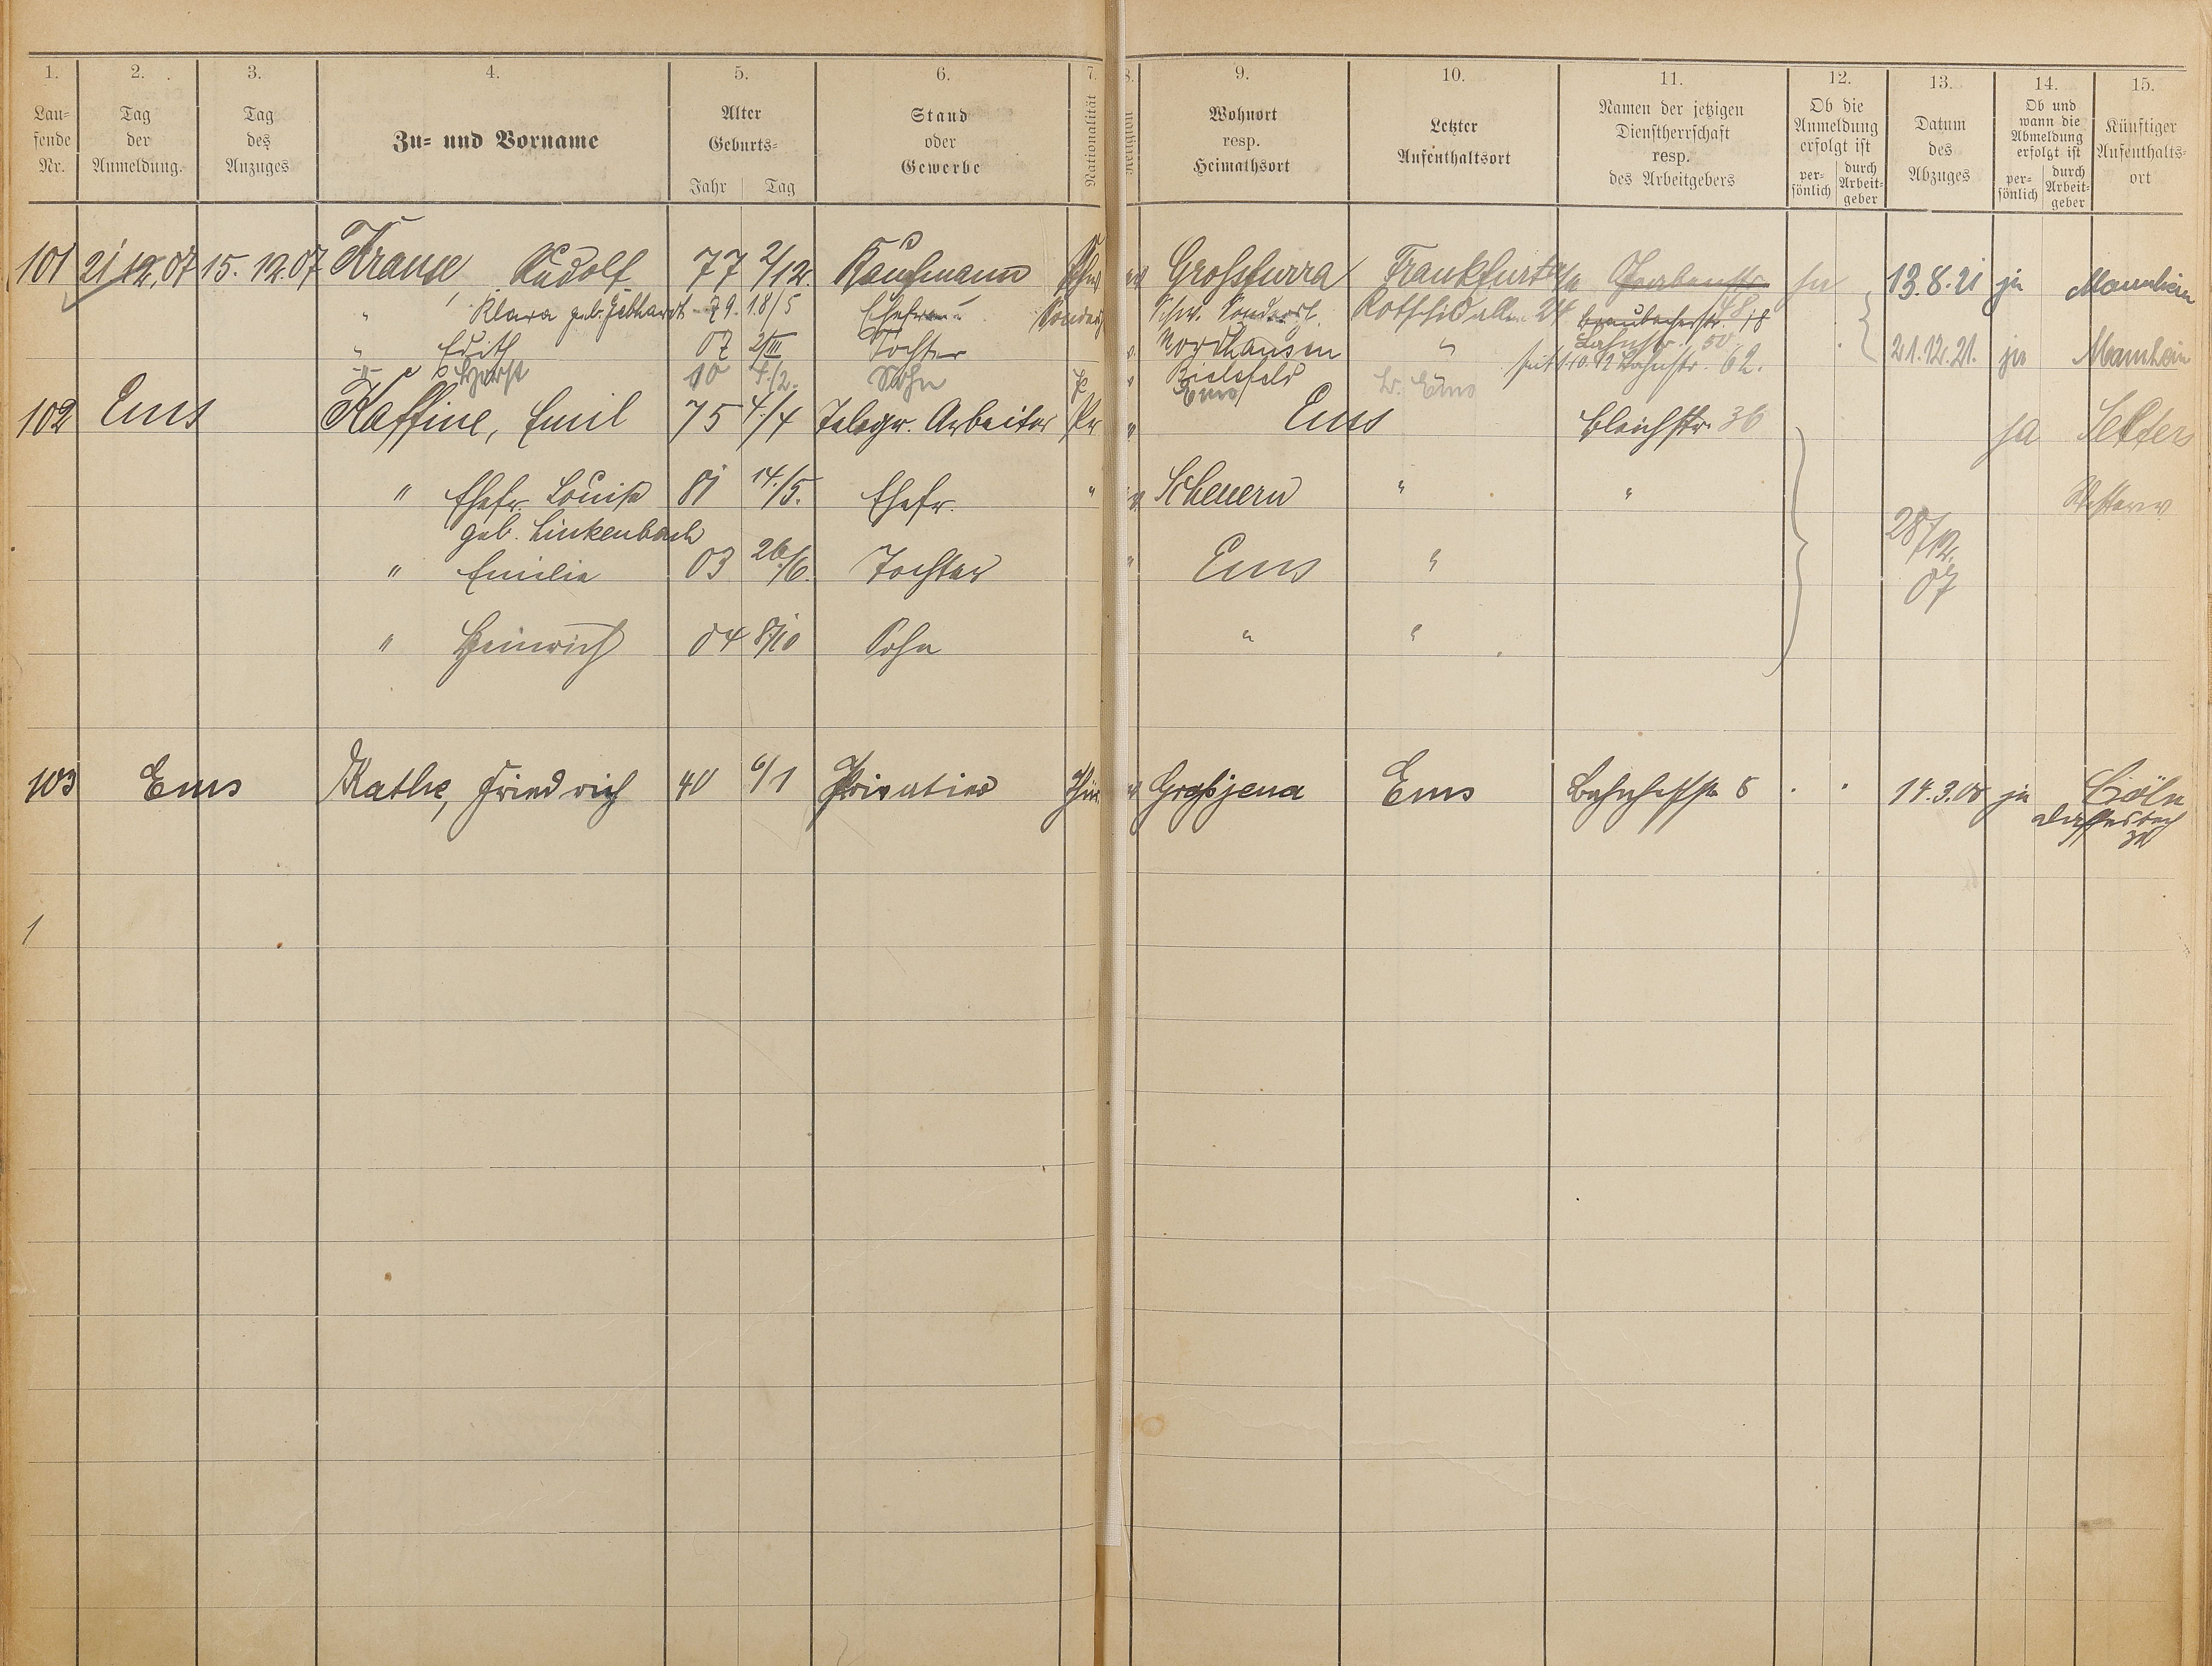 1. 2. 3. 4. 5. 6. 7. 8. 9. 10. 11. 12. 13. 14. 15.
Lau-
fende
Nr.
Tag
der
Anmeldung.
Tag
des
Anzuges
Zu- und Vorname
Alter
Geburts-
Jahr Tag
Stand
oder
Gewerbe
Nationalität
Religion
Wohnort
resp.
Heimathsort
Letzter
Aufenthaltsort
Namen der jetzigen
Dienstherrschaft
resp.
des Arbeitgebers
Ob die
Anmeldung
erfolgt ist
per-
sönlich
durch
Arbeit-
geber
Datum
des
Abzuges
Ob und
wann die
Abmeldung
erfolgt ist
per-
sönlich
durch
Arbeit-
geber
Künftiger
Aufenthalts-
ort
101 21.12.07 15.12.07 Krause Rudolf 77 2/12. Kaufmann Grossfurra Frankfurt a/m ja 13.8.21 ja Mannheim
" Klara geb. Gebhardt 79. 18/5 Ehefrau Schw. Sondersh. 24 Braubacherstr. 18
" Edith 07 2/III Tochter Nordhausen " Bahnstr. 50 21.12.21. ja Manheim
" Horst 10 4./2. Sohn Bielefeld B. Ems seit 1.10.12 Bahnstr. 62.
Ems
102 Ems Kaffine, Emil 75 4/4 Telegr. Arbeiter Pr " Ems Bleichstr. 36 ja Selters
" Ehefr. Louise 81 14./5. Ehefr. " Scheuern " " Westerw.
geb. Linkenbach
" Emilie 03 26./6. Tochter " Ems " 28/12.
07
" Heinrich 04 8/10 Sohn " "
103 Ems Kathe, Friedrich 40 6/1 Privatier Grosjena Ems Bahnhofstr 8 14.3.08 ja Cöln
1